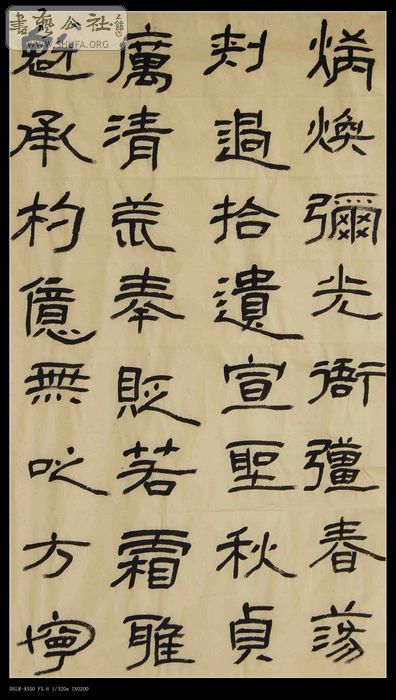 炳煥彌光衙彊春蕩
刾過拾遺宣聖秋貞
厲清荒奉貶若霜雅
魁承杓億無以方寧
書藝公社
WWW.SHUFA.ORG
DSLR-A550 F5.6 1/320s ISO200